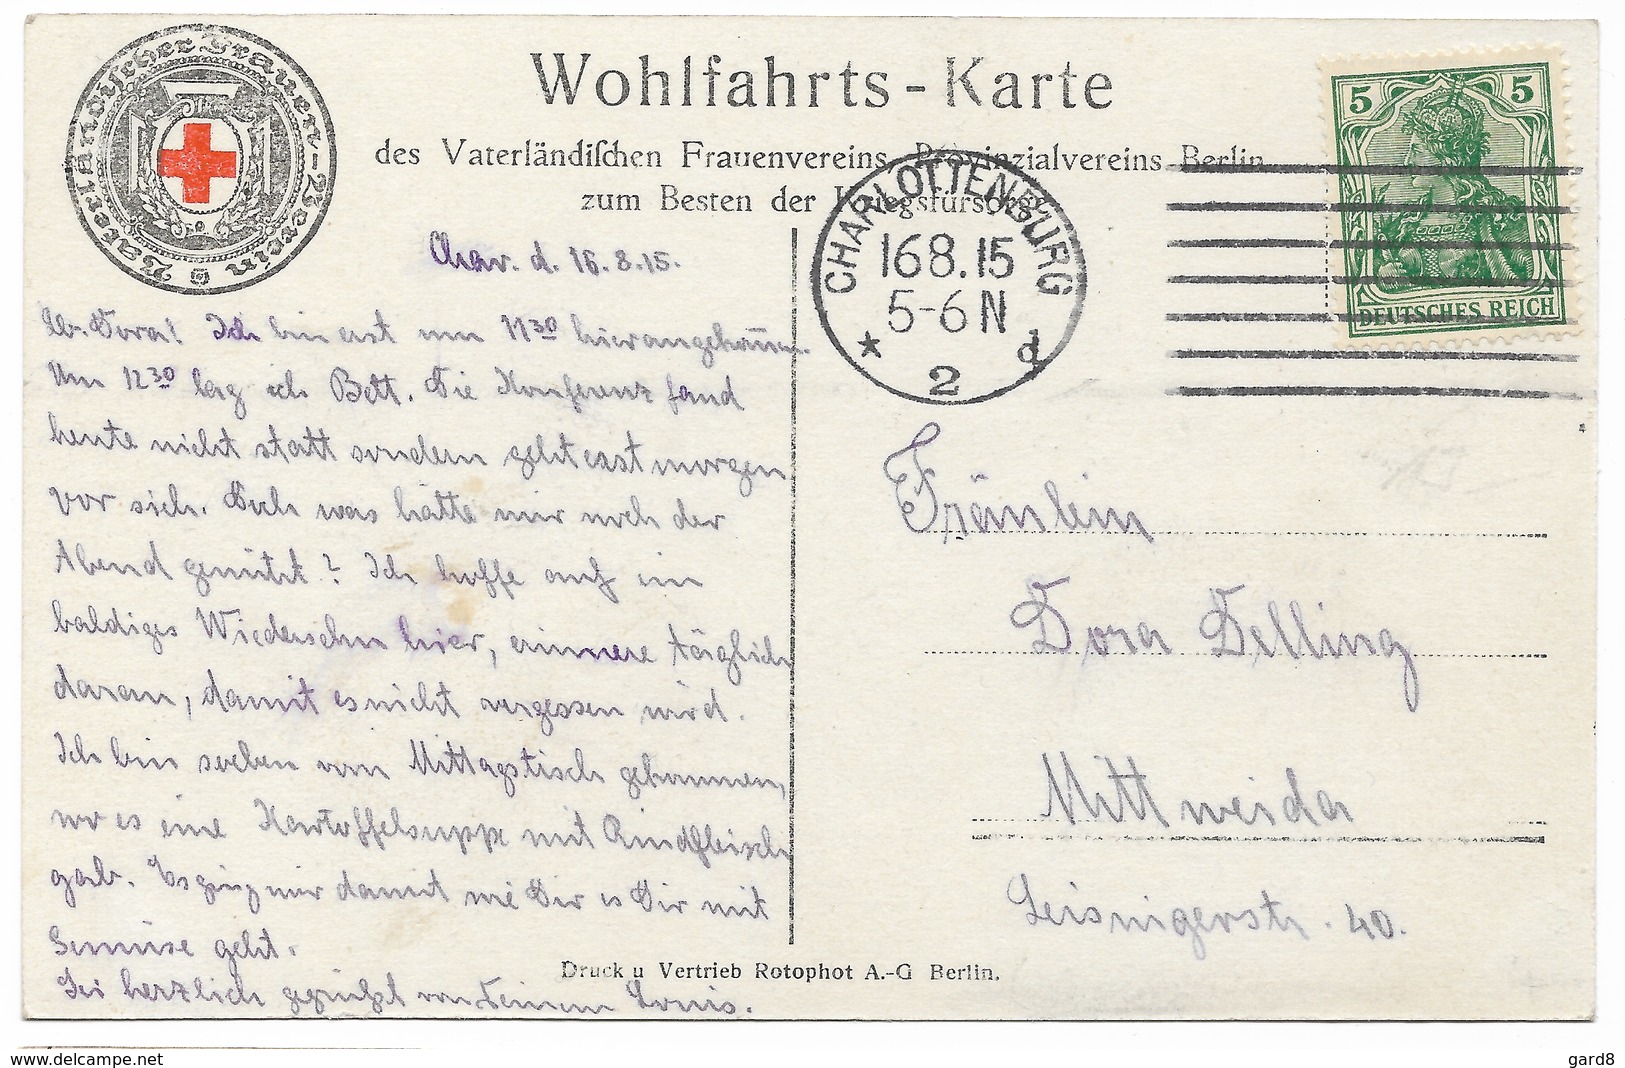 Vaterländischer Frauen-Verein
Wohlfahrts-Karte
des Vaterländiſchen Frauenvereins, Provinzialvereins Berlin
zum Besten der Kriegsfürsorge
CHARLOTTENBURG
168.15
5-6 N
* 2 d
5 5
DEUTSCHES REICH
Char. d. 16.8.15.
Lb. Dora! Ich bin erst um 11 30 hier angekom̅en.
Um 12 30 lag ich Bett. Die Konferenz fand
heute nicht statt sondern geht erst morgen
vor sich. Doch was hätte mir noch der
Abend genützt? Ich hoffe auf ein
baldiges Wiedersehn hier, erinnere täglich
daran, damit es nicht vergessen wird.
Ich bin soeben vom Mittagstisch gekommen,
wo es eine Kartoffelsuppe mit Rindfleisch
gab. Es ging mir damit wie Dir es Dir mit
Gemüse geht.
Sei herzlich gegrüßt von Deinem Louis.
Fräulein
Dora Delling
Mittweida
Leisnigerstr. 40.
Druck u Vertrieb Rotophot A.-G Berlin.
delcampe.net
gard8